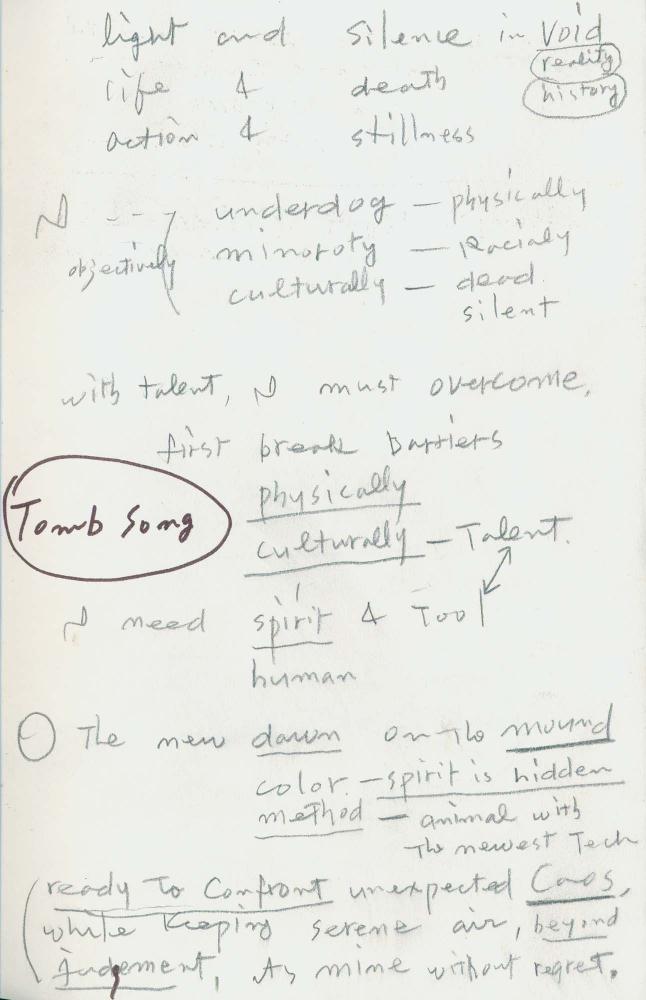 light and silence in void
reality
life & death
history
action & stillness
N --- underdog — physically
objectively minoroty — Racialy
culturally — dead
silent
with talent, N must overcome,
first break barriers
physically
Tomb Song
culturally — Talent.
N need spirit & Tool
human
The new dawn on the mound
color. — spirit is hidden
method — animal with
The newest Tech
ready To Confront unexpected Caos,
while keeping serene air, beyond
judgement, As mine without regret.